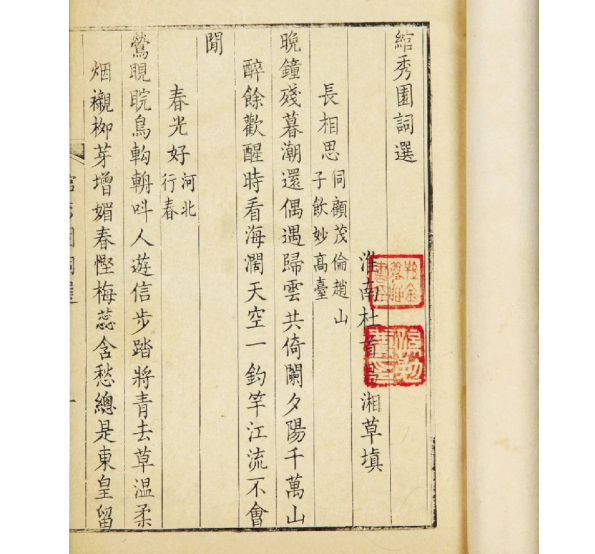 綰秀園詞選
淮南杜首昌湘草填
長相思 同顧茂倫趙山
子飲妙高臺
晚鐘殘暮潮還偶遇歸雲共倚闌夕陽千萬山
醉餘歡醒時看海濶天空一釣竿江流不會
閒
春光好 河北
行春
鶯睍睆鳥軥輈呌人遊信步踏將青去草温柔
烟襯柳芽增媚春慳梅蕊含愁總是東皇留